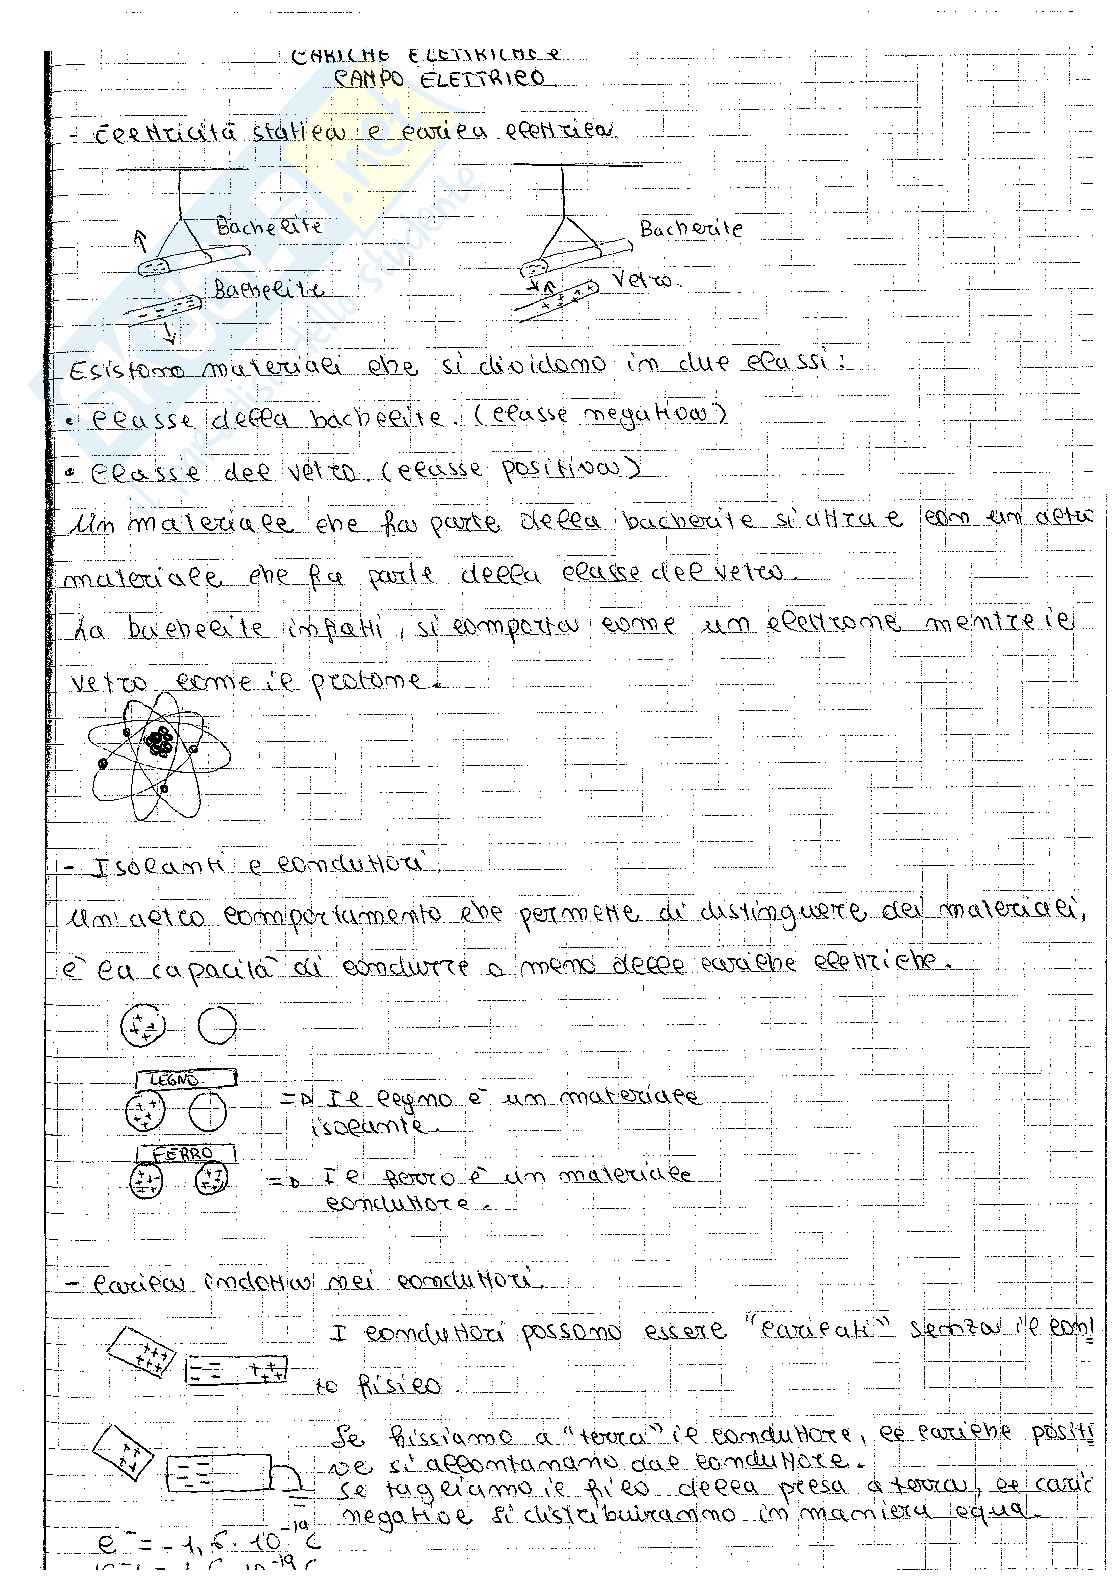 CARICHE ELETTRICHE e
CAMPO ELETTRICO
- Elettricità statica e carica elettrica
Bachelite
Bachelite
Bachelite
Vetro.
Esistono materiali che si dividono in due classi:
• Classe della bachelite. (classe negativa)
• Classe del vetro. (classe positiva)
Un materiale che fa parte della bachelite si attrae con un altro
materiale che fa parte della classe del vetro.
La bachelite infatti, si comporta come un elettrone mentre il
vetro come il protone.
- Isolanti e conduttori.
Un altro comportamento che permette di distinguere dei materiali,
è la capacità di condurre o meno delle cariche elettriche.
LEGNO
=D Il legno è un materiale
isolante.
FERRO
=D Il ferro è un materiale
conduttore.
- Carica indotta nei conduttori.
I conduttori possono essere "caricati" senza il cont
to fisico.
Se fissiamo a "terra" il conduttore, le cariche positi
ve si allontanano dal conduttore.
Se tagliamo il filo della presa a terra, le caric
negative si distribuiranno in maniera equa.
e⁻ = -1,6·10⁻¹⁹ C